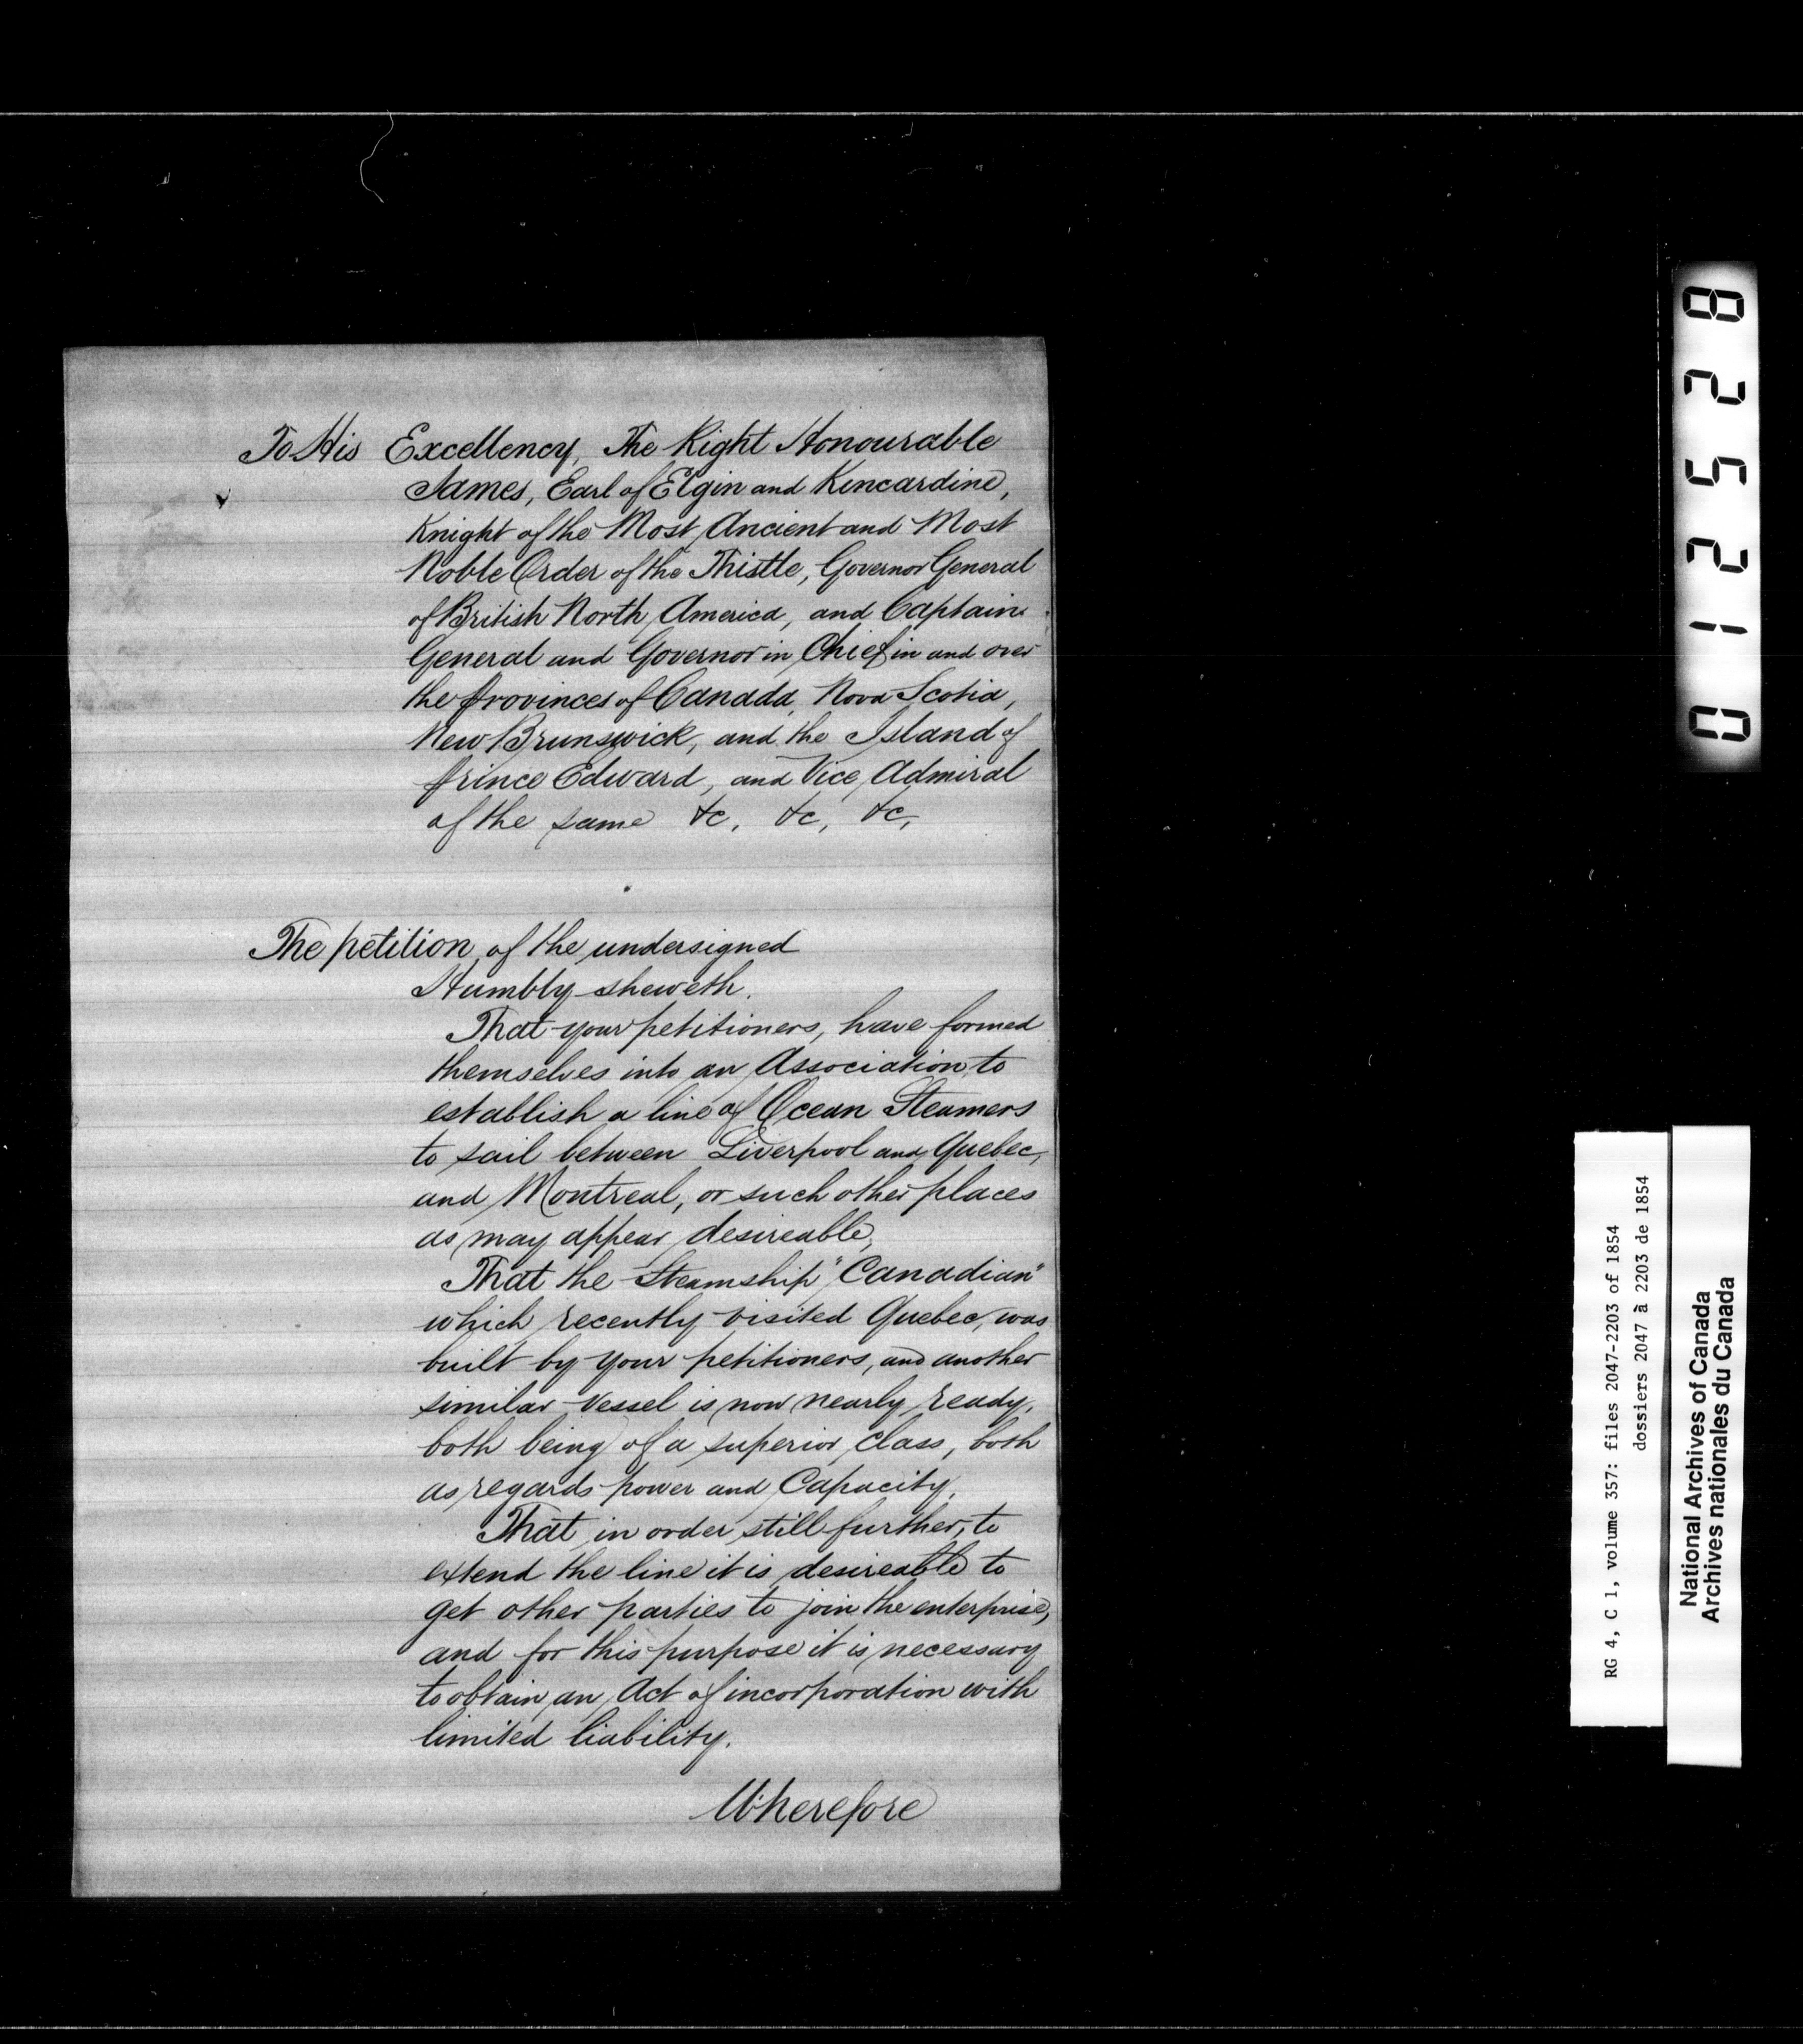 To His Excellency, The Right Honourable
James, Earl of Elgin and Kincardine,
Knight of the Most Ancient and Most
Noble Order of the Thistle, Governor General
of British North America, and Captain
General and Governor in Chief in and over
the provinces of Canada, Nova Scotia,
New Brunswick, and the Island of
prince Edward, and Vice Admiral
of the same &c, &c, &c,
The petition of the undersigned
Humbly sheweth.
That your petitioners, have formed
themselves into an Association, to
establish a line of Ocean Steamers
to sail between Liverpool and Quebec,
and Montreal, or such other places
as may appear desireable,
That the Steamship "Canadian"
which recently visited Quebec, was
built by your petitioners, and another
similar vessel is now nearly ready,
both being of a superior class, both
as regards power and Capacity.
That in order still further, to
extend the line it is desireable to
get other parties to join the enterprise,
and for this purpose it is necessary
to obtain an Act of incorporation with
limited liability.
Wherefore
012528
RG 4, C 1, volume 357: files 2047-2203 of 1854
dossiers 2047 à 2203 de 1854
National Archives of Canada
Archives nationales du Canada